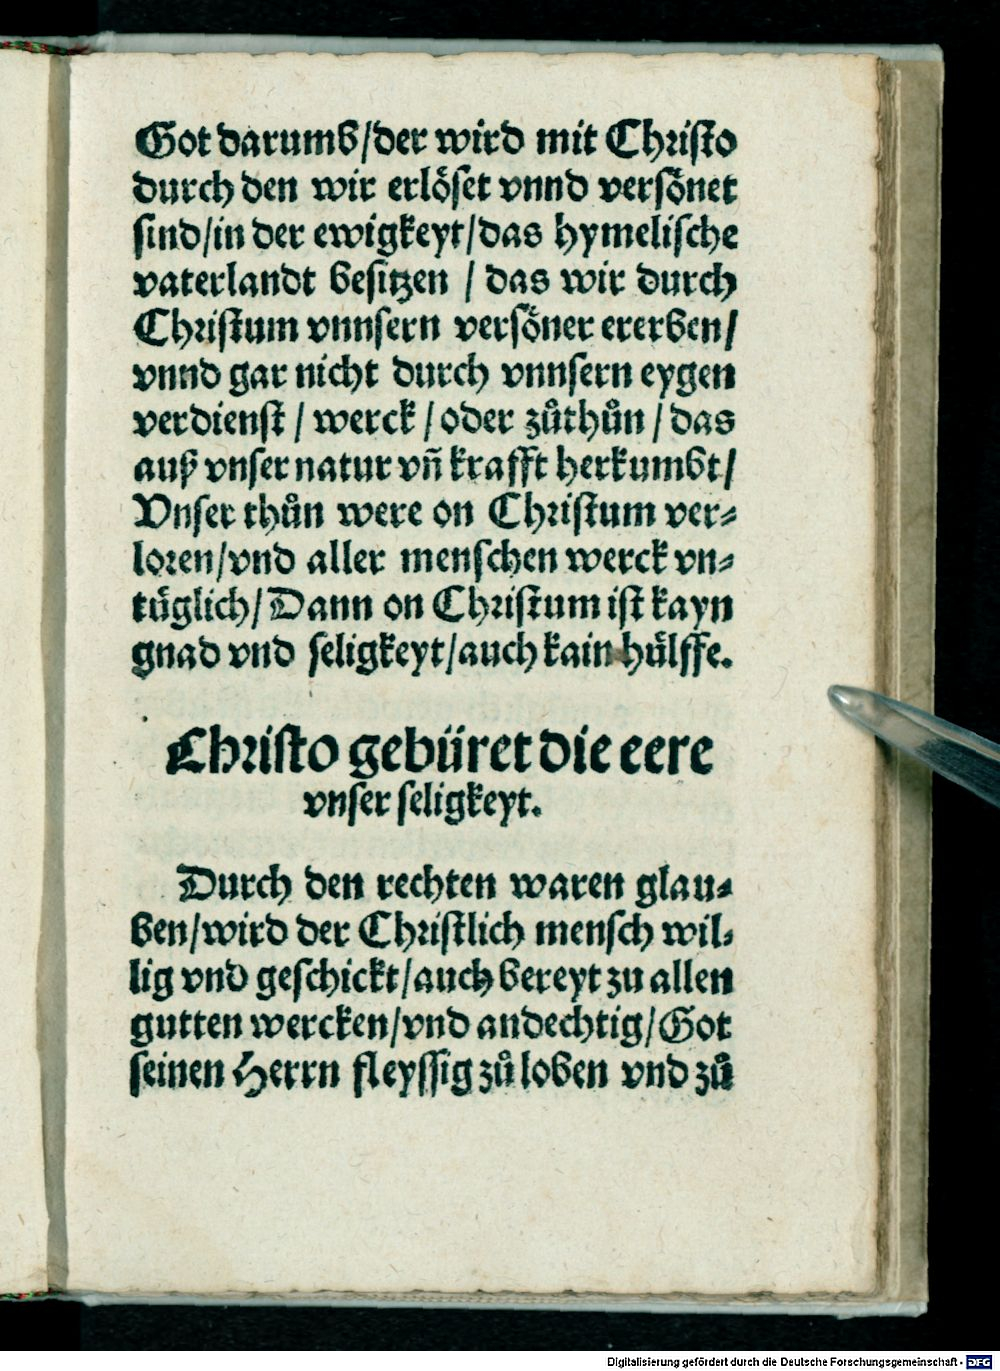 Got darumb/der wird mit Christo
durch den wir erlöset vnnd versönet
sind/in der ewigkeyt/das hymelische
vaterlandt besitzen / das wir durch
Christum vnnsern versöner ererben/
vnnd gar nicht durch vnnsern eygen
verdienst / werck / oder zůthůn / das
auß vnser natur vñ krafft herkumbt/
Vnser thůn were on Christum ver⸗
loren/vnd aller menschen werck vn⸗
tüglich/Dann on Christum ist kayn
gnad vnd seligkeyt/auch kain hülffe.
Christo gebüret die eere
vnser seligkeyt.
Durch den rechten waren glau⸗
ben/wird der Christlich mensch wil⸗
lig vnd geschickt/auch bereyt zu allen
gutten wercken/vnd andechtig/Got
seinen Herrn fleyssig zů loben vnd zů
Digitalisierung gefördert durch die Deutsche Forschungsgemeinschaft - DFG